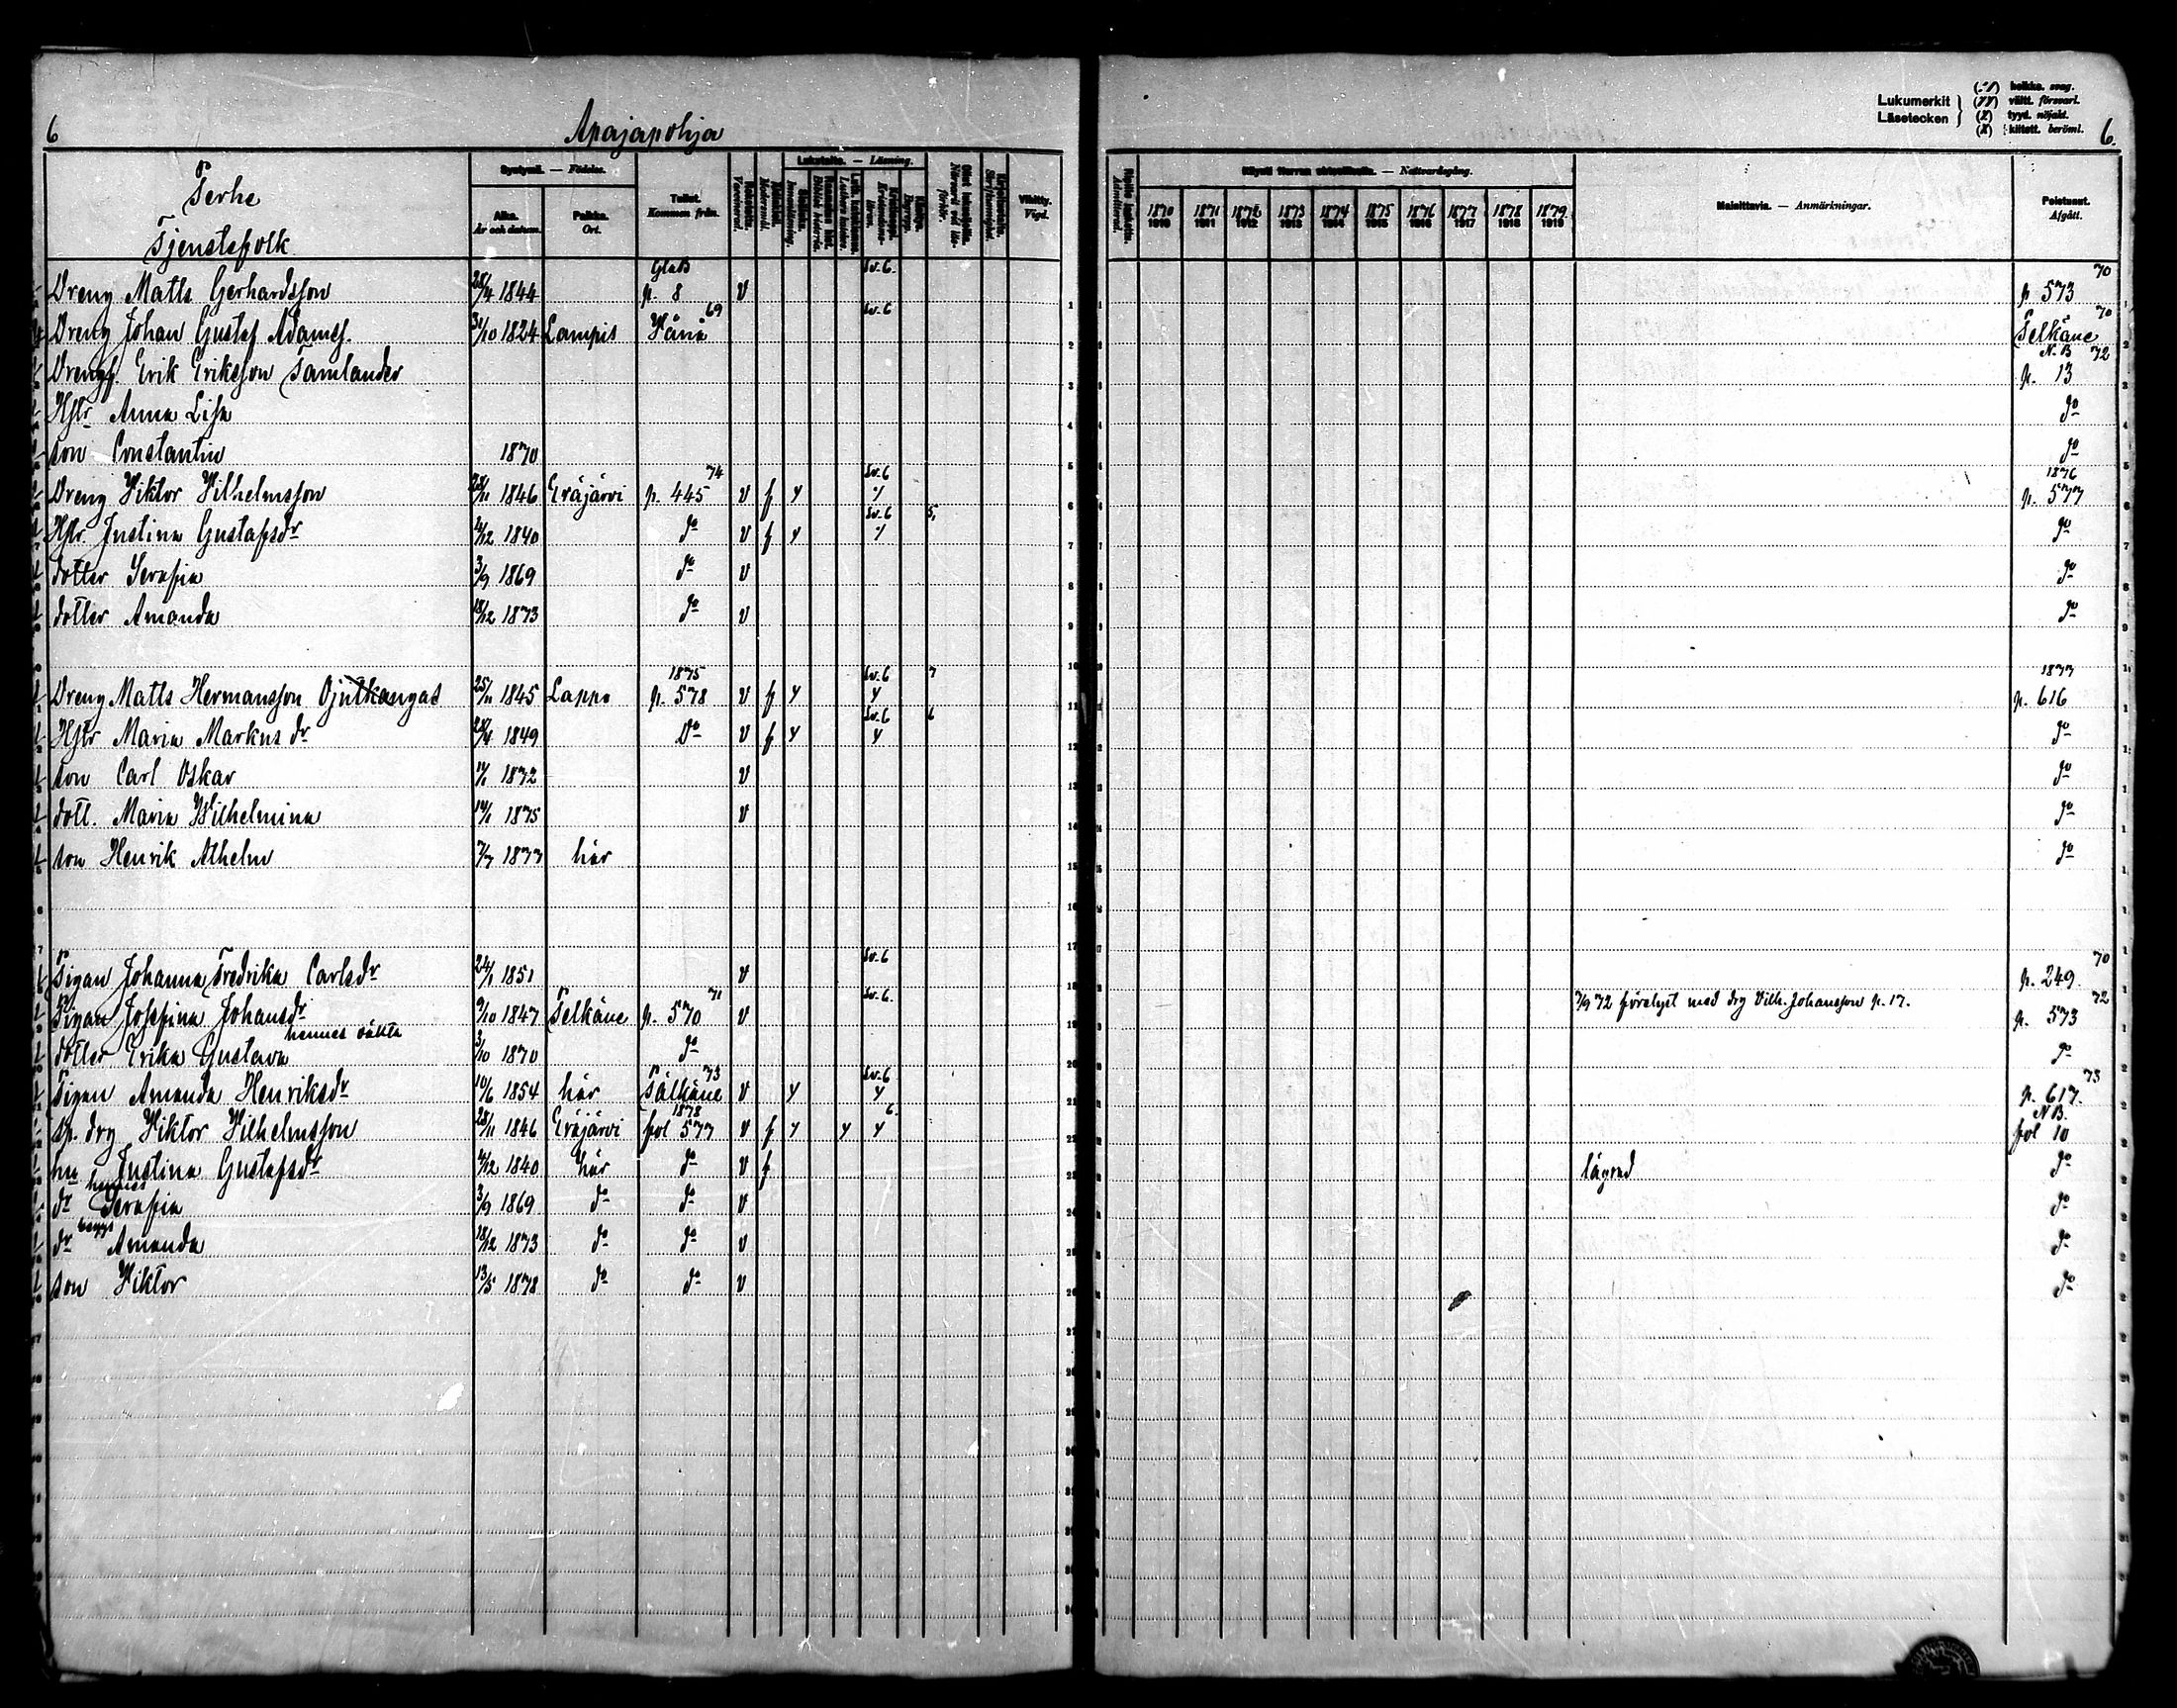 6
Apajapohja
Perhe
Tjenstefolk
Syntymä. — Födelse.
Aika.
År och datum.
Paikka.
Ort.
Tullut.
Kommen från.
Rokotettu.
Vaccinerad.
Lukutaito. — Läsning.
Vihitty.
Vigd.
Lukumerkit
Läsetecken
heikko. svag.
vältt. försvarl.
(Z) tyyd. nöjakt.
(X) kiitett. beröml.
6.
Käynyt Herran ehtoollisella. — Nattvardsgång.
1870 1871 1872 1873 1874 1875 1876 1877 1878 1879
1910 1911 1912 1913 1914 1915 1916 1917 1918 1919
Muistettavia. — Anmärkningar.
Poistunut.
Afgått.
Dreng Matts Gerhardsson 28/4 1844 p. 8 v Sv. 6. p 573 70
Dreng Johan Gustaf Adamss. 31/10 1824 Lampis Wånå 69 Sv. 6 Pelkäne 70
Drengf. Erik Eriksson Tamlander N.B 72 p. 13
Hstr Anna Lisa do
son Constantin 1870 do
Dreng Viktor Vilhelmsson 28/11 1846 Eräjärvi p. 445 74 v f y Sv. 6 1876 p. 577
Hstr. Justina Gustafsdr 4/12 1840 do v f y Sv. 6 5, do
dotter Serafia 3/9 1869 do v do
dotter Amanda 18/12 1873 do v do
Dreng Matts Hermansson Ojutkangas 25/11 1845 Lappo 1875 p. 578 v f y Sv. 6 y 7 1877 p. 616
Hstr Maria Markus dr 1849 Do v f y Sv. 6 y 6 do
son Carl Oskar 1872 v do
dott. Maria Wilhelmina 1875 v do
son Henrik Alhelm 7/7 1877 här do
Pigan Johanna Fredrika Carlsdr 24/1 1851 v Sv. 6 70 p. 249
Pigan Josefina Johansdr 9/10 1847 Pelkäne p. 570 71 v Sv. 6. 7/9 72 förelyst med drg Vilh. Johansson p. 17. 72 p. 573
hennes oäkta
dotter Erika Gustava 3/10 1870 do do
Pigan Amanda Henriksdr 10/6 1854 här Pälkäne 73 v y Sv. 6 y 73 p. 617.
Sp. drg Viktor Vilhelmsson 28/11 1846 Eräjärvi 1878 fol 577 v f y y y 6. N B. fol 10
hu Justina Gustafsdr 4/12 1840 här do v f lägrad do
hennes
dr Serafia 3/9 1869 do do v do
dr Amanda 18/12 1873 do do v do
son Viktor 13/5 1878 do do v do